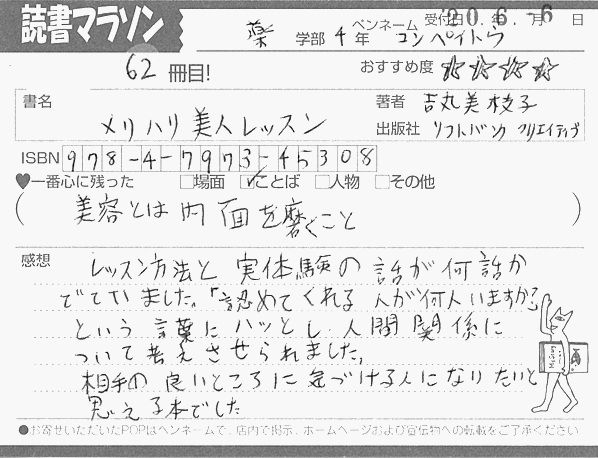 読書マラソン
薬 学部 4 年 ペンネーム コンペイトウ 受付日 '20. 6. -6 日
62 冊目! おすすめ度 ☆☆☆☆
書名 メリハリ美人レッスン
著者 吉丸美枝子
出版社 ソフトバンククリエイティブ
ISBN 978-4-7973-45308
♥一番心に残った □場面 ☑ことば □人物 □その他
(美容とは内面を磨くこと)
感想 レッスン方法と実体験の話が何話か
でていました。「認めてくれる人が何人いますか?」
という言葉にハッとし、人間関係に
ついて考えさせられました。
相手の良いところに気づける人になりたいと
思える本でした
●お寄せいただいたPOPはペンネームで、店内で掲示、ホームページおよび宣伝物への転載をご了承ください